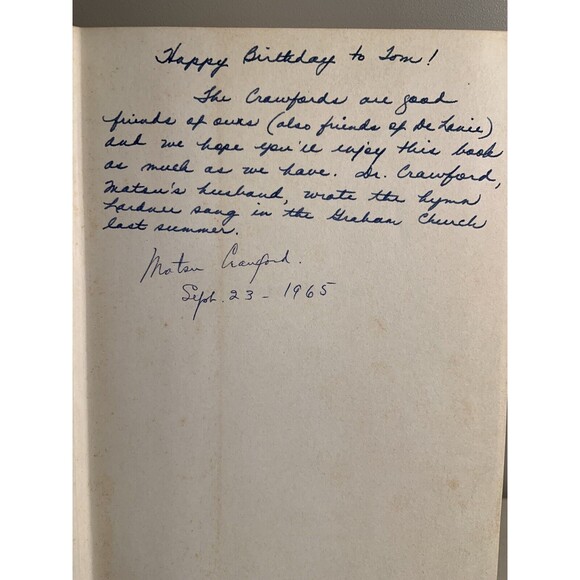 Happy Birthday to Tom!
The Crawfords are good
friends of ours (also friends of De Lanie)
and we hope you'll enjoy this book
as much as we have. Dr. Crawford,
Matsu's husband, wrote the hymn
Lardner sang in the Graham Church
last summer.
Matsu Crawford.
Sept. 23 - 1965